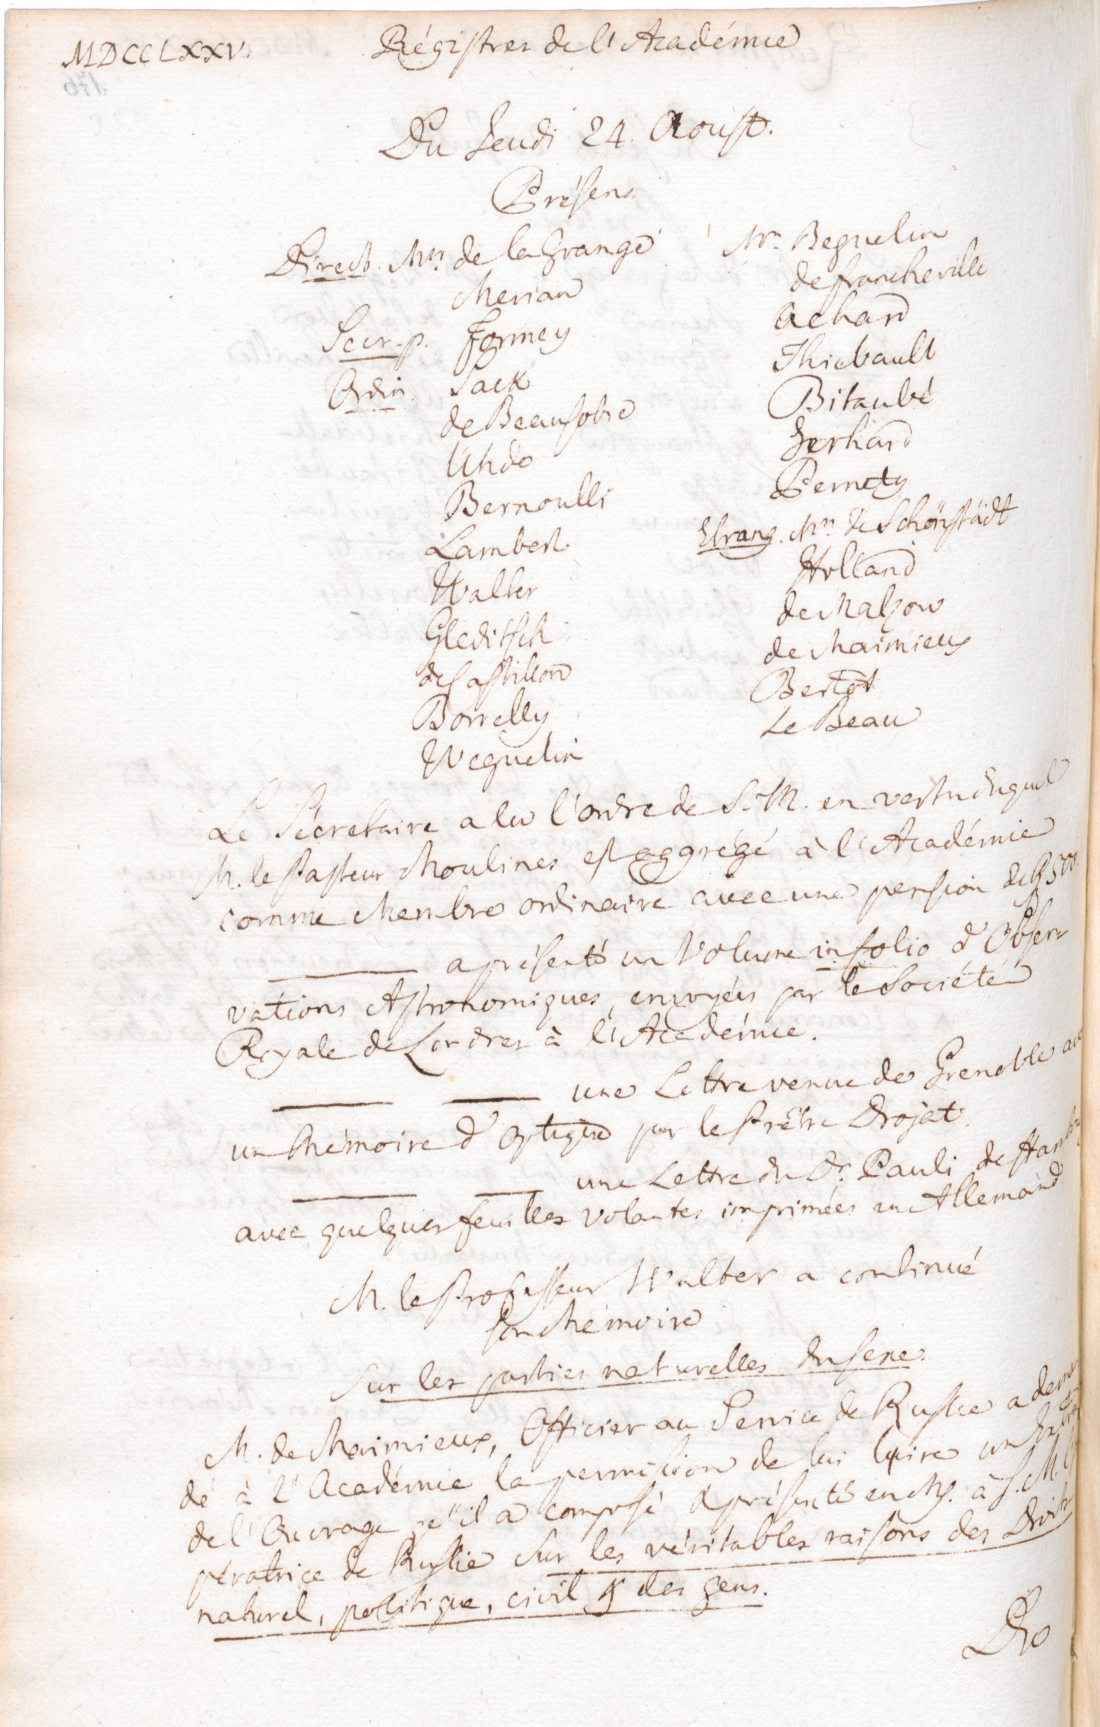 MDCCLXXV. Régistres de l'Académie
Du Jeudi 24. Aoust.
Présens
Direct. Mrs. de la Grange
Merian
Secr. p. Formey
Ordin. Sack
de Beausobre
Uhdo
Bernoulli
Lambert
Walter
Gleditsch
de Castillon
Borrelly
Weguelin
Mrs. Beguelin
de francheville
Achard
Thiebault
Bitaubé
Gerhard
Pernety
Etrang. Mrs. de Schönstädt
Holland
de Malzow
de Maimieux
Bertot
Le Beau
Le Sécretaire a lu l'ordre de S. M. en vertu duquel
M. le Pasteur Moulines est aggrégé à l'Académie
comme Membre ordinaire avec une pension de
a présenté un Volume in folio d'Obser
vations Astronomiques, envoyées par la Société
Royale de Londres à l'Académie.
une Lettre venue de Grenoble
un Mémoire d'Optique par le Prêtre Drojat.
une Lettre du Dr. Pauli de
avec quelques feuilles volantes imprimées en Allemand.
M. le Professeur Walter a continué
son Mémoire
Sur les parties naturelles du sexe.
M. de Maimieux, Officier au Service de Russie a
dé à l'Académie la permission de lui lire un
de l'Ouvrage qu'il a composé & présenté en Ms. à S. M.
pératrice de Russie sur les véritables raisons des Droits
naturel, politique, civil & des gens.